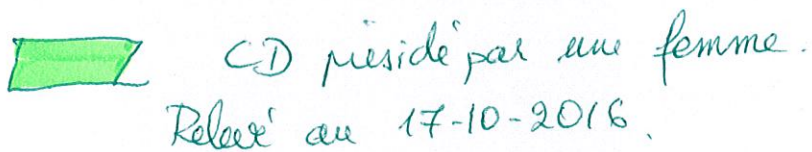 CD présidé par une femme.
Relevé au 17-10-2016.